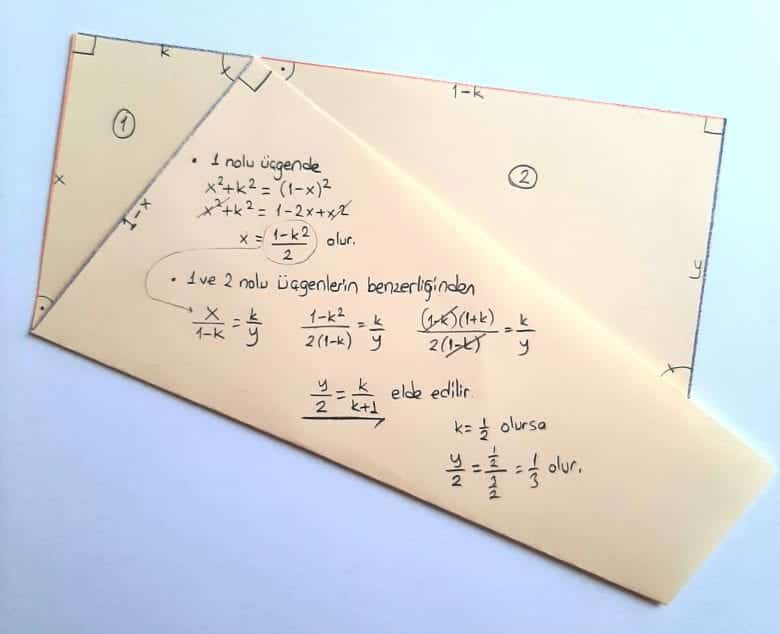 k
1-k
1
2
x
1-x
y
• 1 nolu üçgende
x²+k² = (1-x)²
x²+k² = 1-2x+x²
x = 1-k²/2 olur.
• 1 ve 2 nolu üçgenlerin benzerliğinden
x/1-k = k/y   1-k²/2(1-k) = k/y   (1-k)(1+k)/2(1-k) = k/y
y/2 = k/k+1 elde edilir.
k = 1/2 olursa
y/2 = 1/2/3/2 = 1/3 olur.